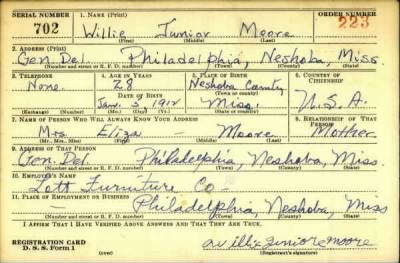 SERIAL NUMBER 1. NAME (Print) ORDER NUMBER
702 Willie Junior Moore 223
(First) (Middle) (Last)
2. ADDRESS (Print)
Gen. Del. Philadelphia, Neshoba, Miss.
(Number and street or R. F. D. number) (Town) (County) (State)
3. TELEPHONE 4. AGE IN YEARS 5. PLACE OF BIRTH 6. COUNTRY OF CITIZENSHIP
None. 28 Neshoba County
DATE OF BIRTH (Town or county)
Jan. 3, 1912 Miss. U.S.A.
(Exchange) (Number) (Mo.) (Day) (Yr.) (State or country)
7. NAME OF PERSON WHO WILL ALWAYS KNOW YOUR ADDRESS 8. RELATIONSHIP OF THAT PERSON
Mrs Eliza — Moore Mother
(Mr., Mrs., Miss) (First) (Middle) (Last)
9. ADDRESS OF THAT PERSON
Gen. Del. Philadelphia, Neshoba, Miss.
(Number and street or R. F. D. number) (Town) (County) (State)
10. EMPLOYER'S NAME
Lott Furniture Co
11. PLACE OF EMPLOYMENT OR BUSINESS
— Philadelphia, Neshoba, Miss
(Number and street or R. F. D. number) (Town) (County) (State)
I AFFIRM THAT I HAVE VERIFIED ABOVE ANSWERS AND THAT THEY ARE TRUE.
REGISTRATION CARD
D. S. S. Form 1 (over) willie junior moore
(Registrant's signature)